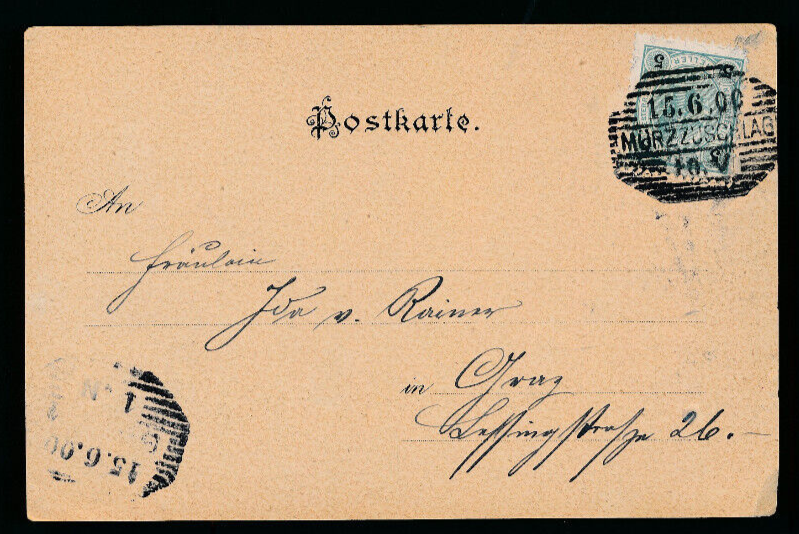 5 HELLER 5
15.6.00
MÜRZZUSCHLAG
10.
Postkarte.
An
Fräulein
Ida v. Rainer
in Graz
Lessingstraße 26.–
15.6.00
1